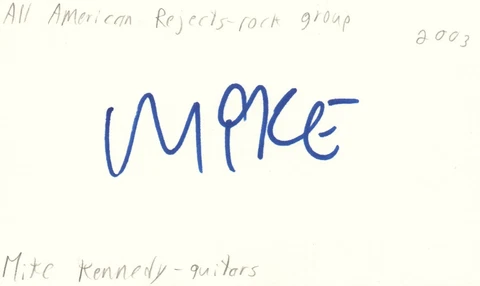 All American Rejects-rock group
2003
MIKE
Mike Kennedy-guitars